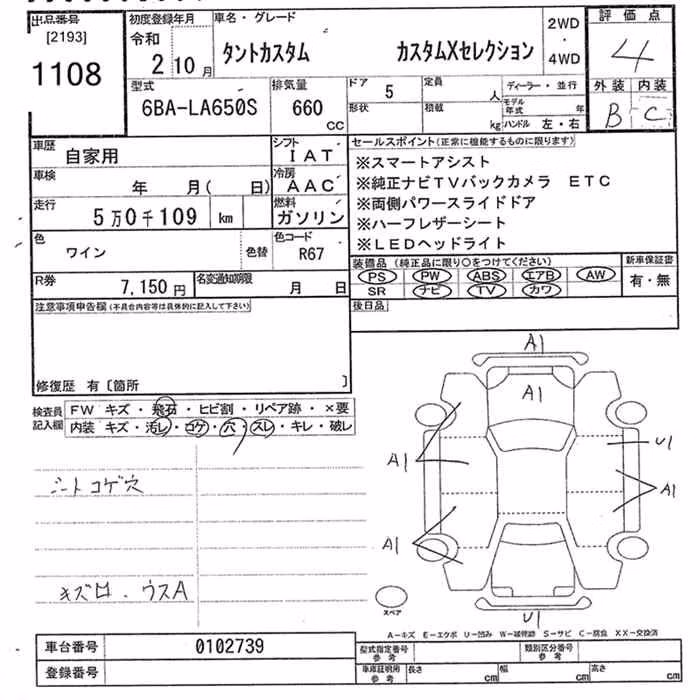 出品番号
[2193]
1108
初度登録年月
令和
2 10 月
車名・グレード
タントカスタム カスタムXセレクション
2WD
・
4WD
評価点
4
外装 内装
B C
型式
6BA-LA650S
排気量
660
CC
ドア
5
形状
定員
人
積載
kg
ディーラー・並行
モデル年式 年
ハンドル 左・右
車歴
自家用
シフト
IAT
車検
年 月( 日)
冷房
AAC
走行
5万0千109 km
燃料
ガソリン
色
ワイン
色替
色コード
R67
R券
7,150 円
名変通知期限
月 日
セールスポイント(正常に機能するものに限ります)
※スマートアシスト
※純正ナビTVバックカメラ ETC
※両側パワースライドドア
※ハーフレザーシート
※LEDヘッドライト
装備品(純正品に限り○をつけてください)
PS PW ABS エアB AW
SR ナビ TV カワ
新車保証書
有・無
後日品
注意事項申告欄(不具合内容等は具体的に記入して下さい)
修復歴 有〔箇所 〕
検査員
記入欄
FW キズ・飛石・ヒビ割・リペア跡・×要
内装 キズ・汚レ・コゲ・穴・スレ・キレ・破レ
シートコゲ穴
キズ口.ウスA
A1
A1
A1
U1
A1
A1
U1
スペア
A-キズ E-エクボ U-凹み W-補修跡 S-サビ C-腐食 XX-交換済
車台番号
0102739
登録番号
型式指定番号
参考
類別区分番号
参考
車庫証明用
参考
長さ cm
幅 cm
高さ cm